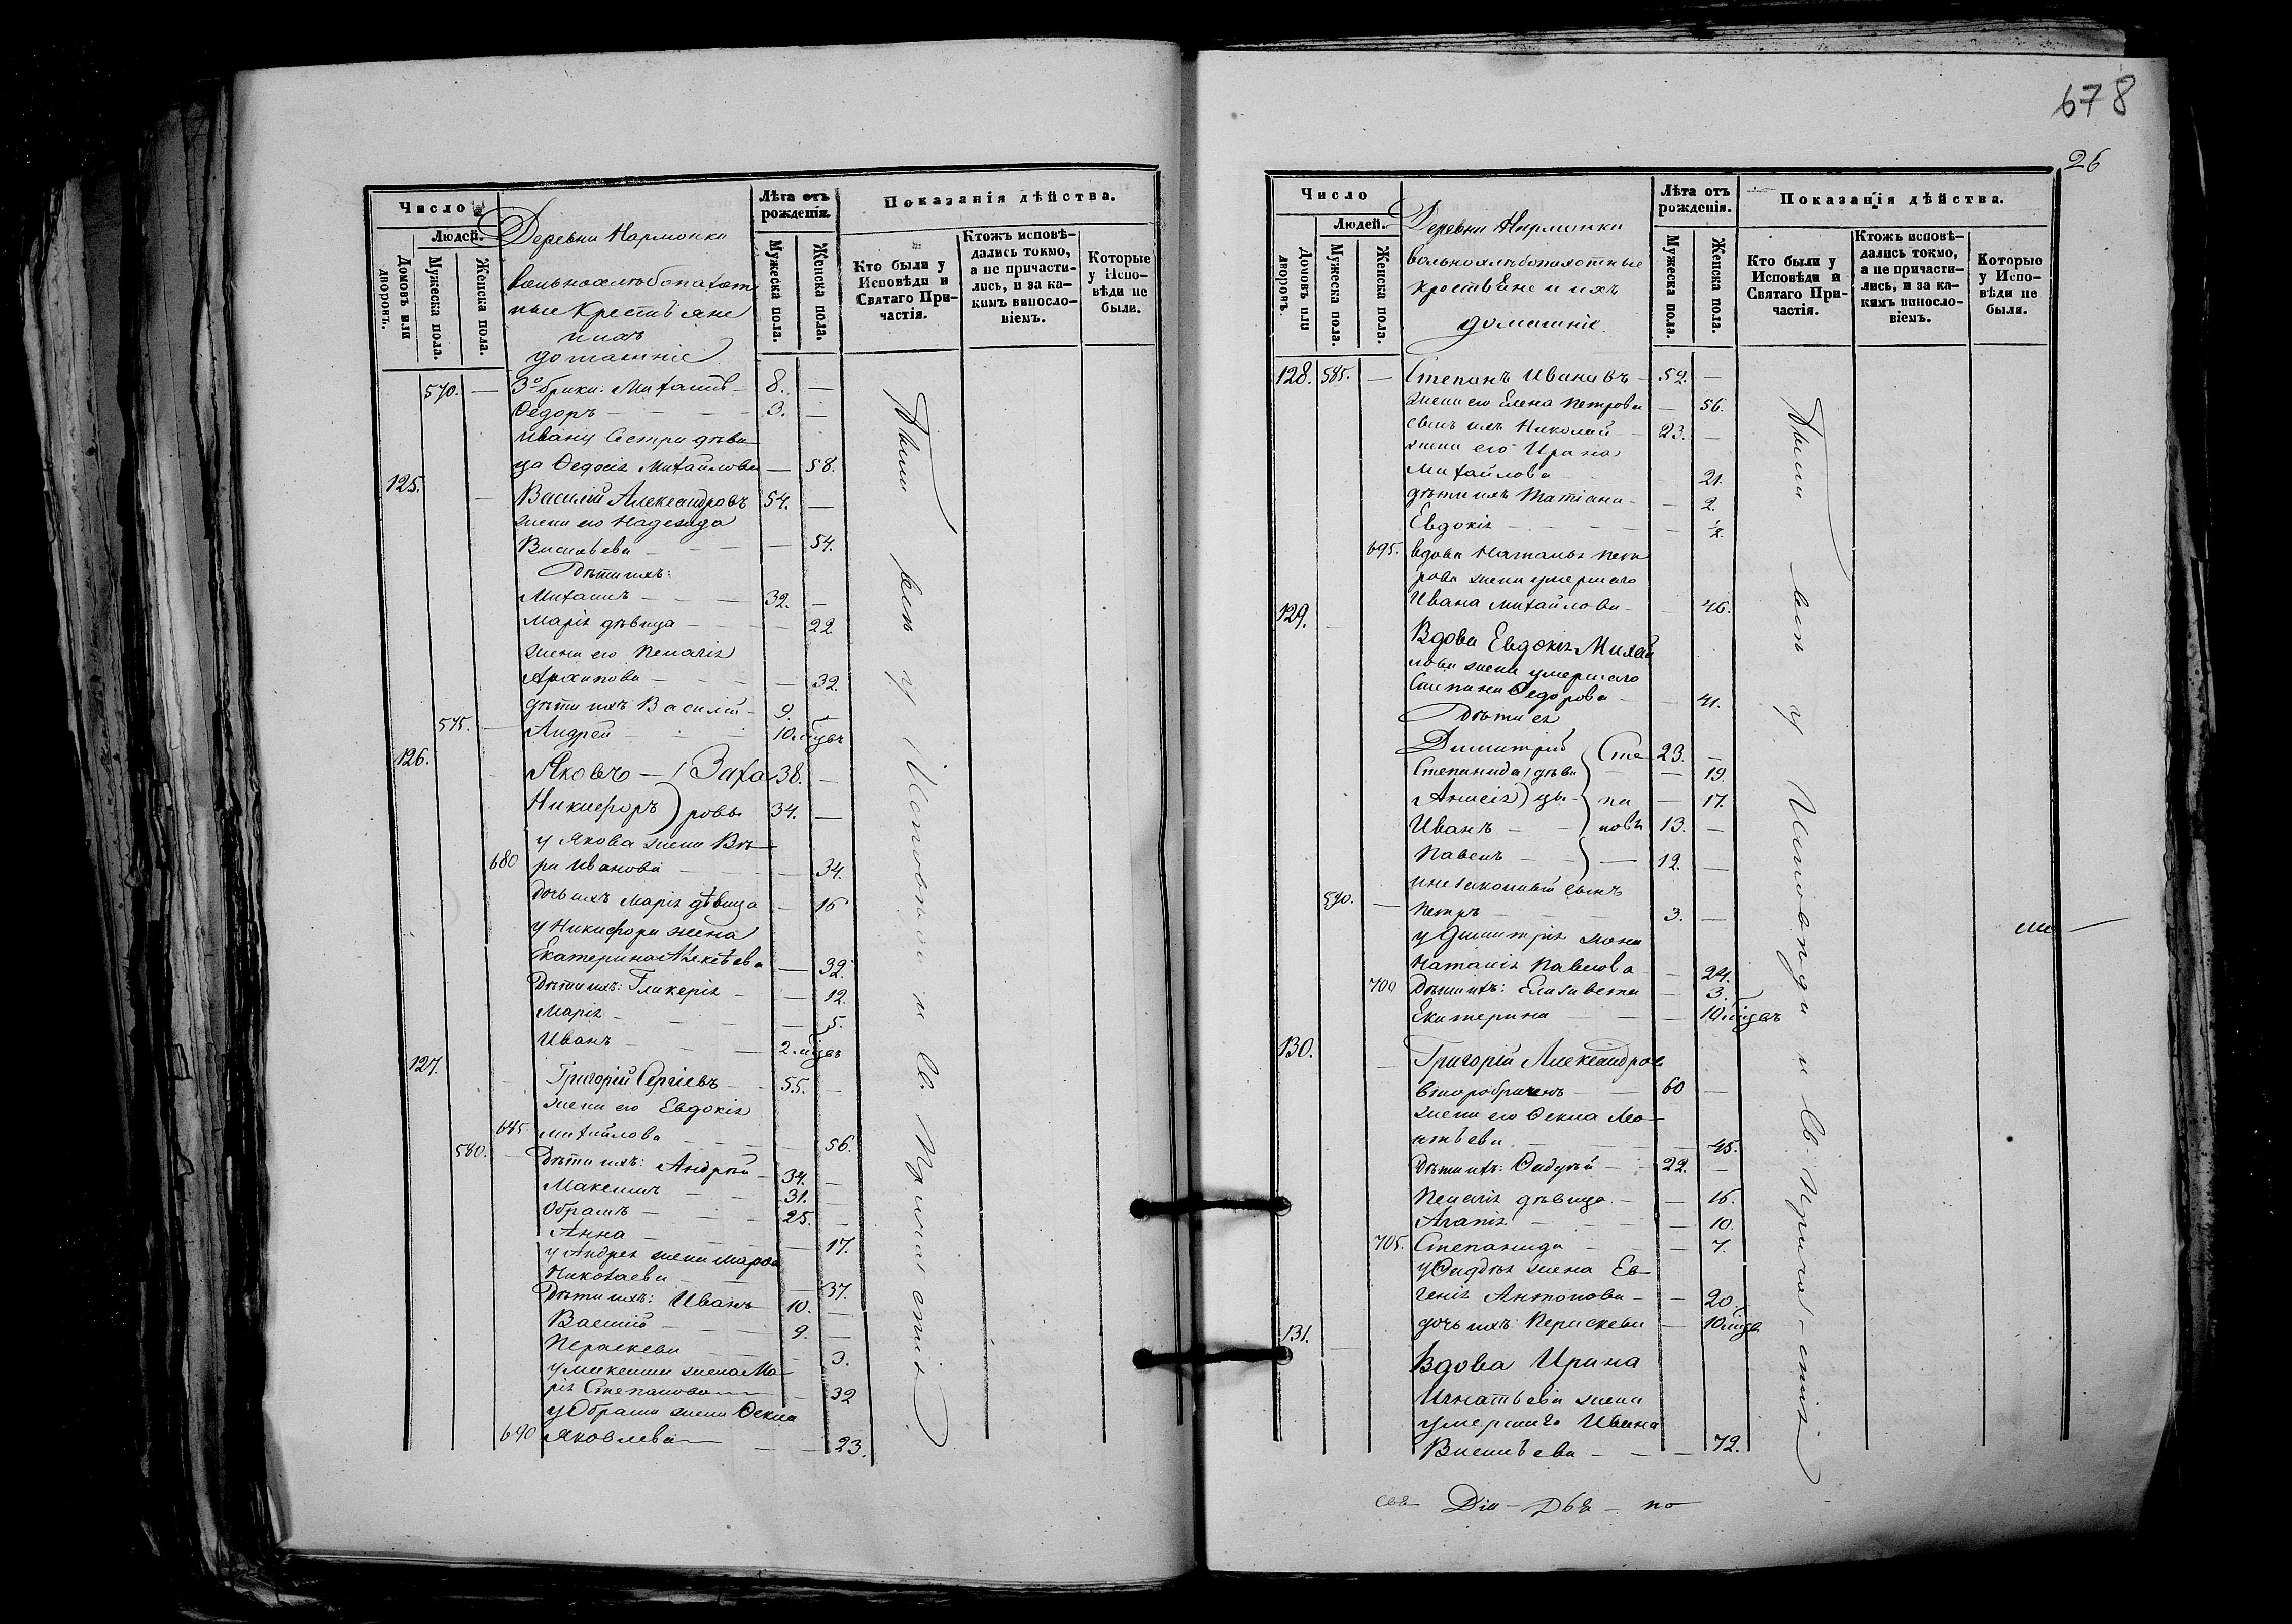 Число
Людей.
Домовъ или дворовъ.
Мужеска пола.
Женска пола.
Деревни Нармонки
вольнохлѣбопахот
ные Крестьяне
и ихъ
домашніе
Лѣта отъ рожденія.
Мужеска пола.
Женска пола.
Показанія дѣйства.
Кто были у Исповѣди и Святаго Причастія.
Ктожъ исповѣдались токмо, а не причастились, и за какимъ винословіемъ.
Которые у Исповѣди не были.
570. — 3º брака: Михаилъ — 8. —
Ѳедоръ — 3. —
Ивана Сестра дѣви
ца Ѳедосія Михайлова — 58.
125. — Василій Александровъ 54. —
жена его Надежда
Васильева — 54.
Дѣти ихъ:
Михаилъ — 32. —
Марія дѣвица — 22
жена его Пелагія
Архипова — 32.
дѣти ихъ Василій — 9. —
575. — Андрей — 10 мѣцвъ
126. Яковъ — ) Заха 38. —
Никифоръ ) ровы 34. —
у Якова жена Вѣ
680 ра Иванова — 34.
Дочь ихъ Марія дѣвица — 16
у Никифора жена
Екатерина Алексѣева — 32.
Дѣти ихъ: Гликерія — 12.
Марія — 5.
Иванъ — 2 мѣцвъ
127. Григорій Сергіевъ — 55. —
жена его Евдокія
685. Михайлова — 56.
580. — Дѣти ихъ: Андрей — 34. —
Максимъ — 31. —
Обрамъ — 25. —
Анна — 17.
у Андрея жена Марѳа
Николаева — 37.
Дѣти ихъ: Иванъ 10. —
Василій — 9. —
Параскева — 3.
у Максима жена Ма
рія Степанова — 32
у Обрама жена Ѳекла
690 Яковлева — 23.
были всѣ у Исповѣди и Св. Причастія
678
26
Число
Людей.
Домовъ или дворовъ.
Мужеска пола.
Женска пола.
Деревни Нармонки
вольнохлѣбопахотные
крестьяне и ихъ
домашніе.
Лѣта отъ рожденія.
Мужеска пола.
Женска пола.
Показанія дѣйства.
Кто были у Исповѣди и Святаго Причастія.
Ктожъ исповѣдались токмо, а не причастились, и за какимъ винословіемъ.
Которые у Исповѣди не были.
128. 585. — Степанъ Ивановъ — 52. —
жена его Елена Петрова — 56.
сынъ ихъ Николай — 23. —
жена его Ирина
Михайлова — 21.
дѣти ихъ Татіана — 2.
Евдокія — ½.
695. вдова Наталья Пет
рова жена умершаго
Ивана Михайлова — 46.
129. — Вдова Евдокія Михай
лова жена умершаго
Степана Ѳедорова — 41.
Дѣти ея
Димитрій ) Сте 23. —
Степанида ) дѣви — 19.
Анисія ) цы — па — 17.
Иванъ — новы 13. —
Павелъ — 12. —
незаконный сынъ
590. — Петръ — 3. —
у Димитрія жена
Наталія Павлова — 24.
700 Дѣти ихъ: Елизавета — 3.
Екатерина — 10 мѣцвъ
130. — Григорій Александров
второбрачен — 60 —
жена его Ѳекла Лео
нтьева — 45.
Дѣти ихъ: — 22. —
Пелагія дѣвица — 16.
Агапія — 10.
705. Степанида — 7.
жена Ев
генія Антонова — 20.
дочь ихъ Параскева — 10 мѣцв
131. — Вдова Ирина
Игнатьева жена
умершаго Ивана
Васильева — 72.
были всѣ у Исповѣди и Св. Причастія